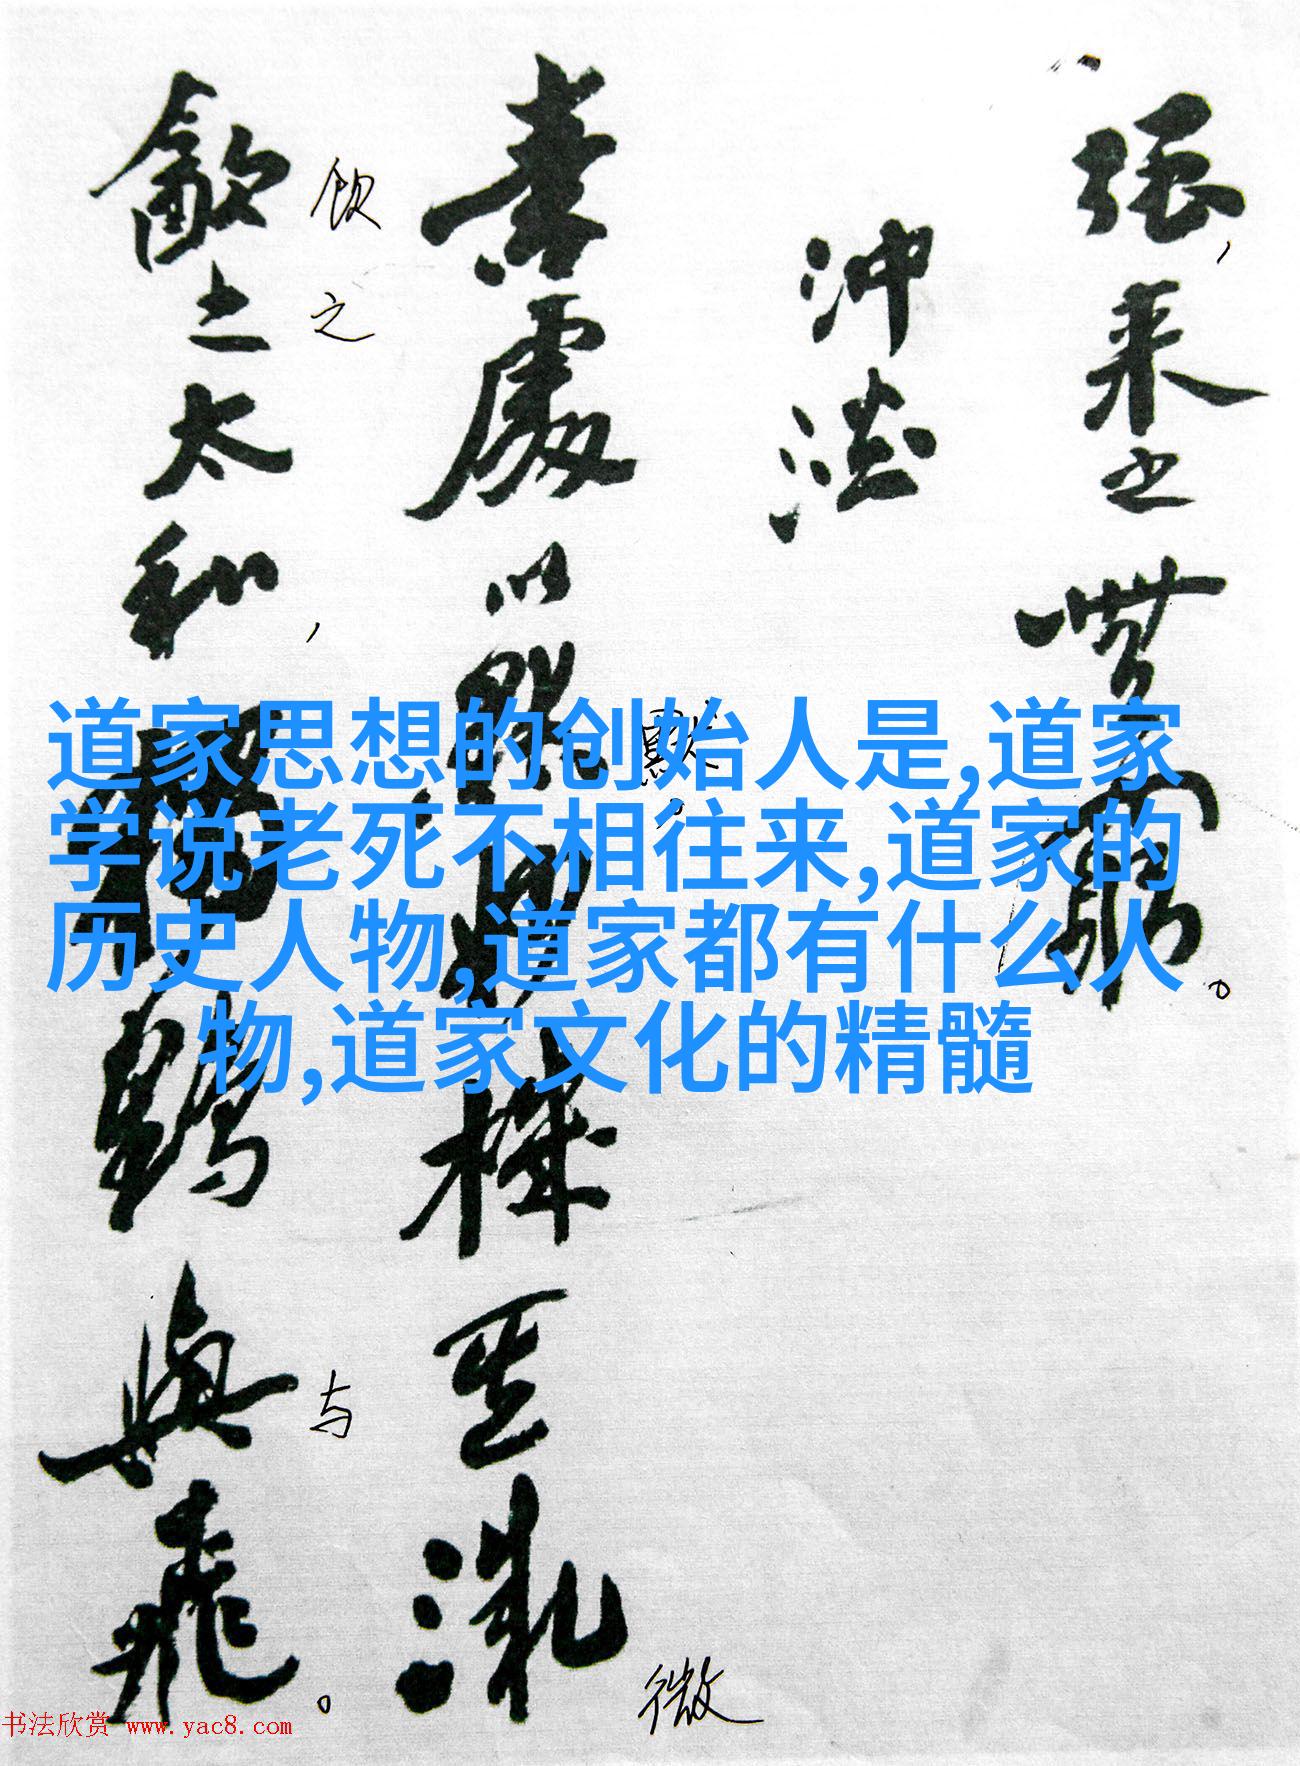 强,来之無窮。
沖淡
素處以默妙機其微
默。
微
飲之太和,獨鶴與飛。
饮之
与
道家思想的创始人是,道家
学说老死不相往来,道家的
历史人物,道家都有什么人
物,道家文化的精髓
书法欣赏 www.yac8.com